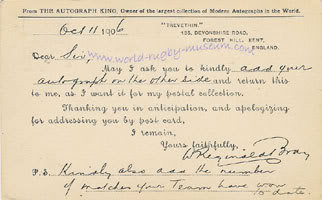 From THE AUTOGRAPH KING, Owner of the largest collection of Modern Autographs in the World.
Oct 11 1906
"TREVETHIN,"
135, DEVONSHIRE ROAD,
FOREST HILL, KENT,
ENGLAND.
www.world-rugby-museum.com
Dear Sir,
May I ask you to kindly add your
autograph on the other side and return this
to me, as I want it for my postal collection.
Thanking you in anticipation, and apologizing
for addressing you by post card,
I remain,
Yours faithfully,
W Reginald Bray
P.S. Kindly also add the number
of matches your Team have won
to date.